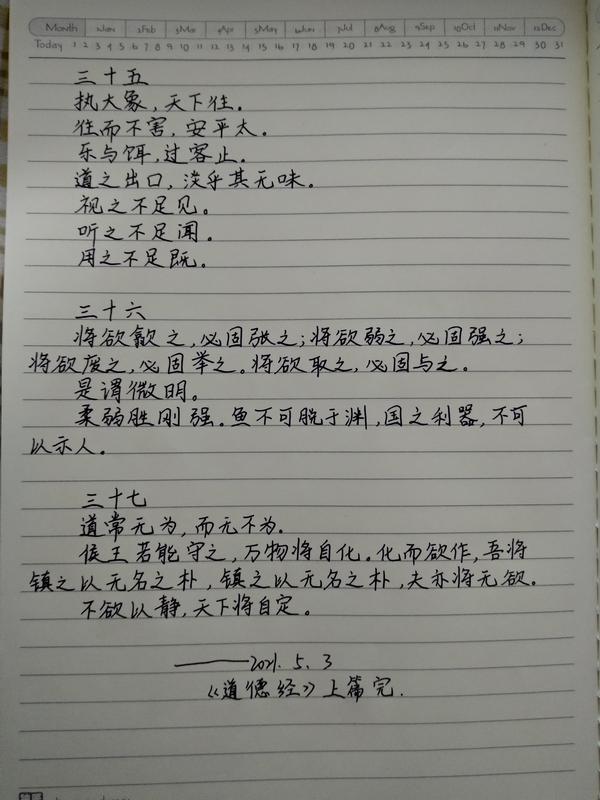 Month 1Jan 2Feb 3Mar 4Apr 5May 6Jun 7Jul 8Aug 9Sep 10Oct 11Nov 12Dec
Today 1 2 3 4 5 6 7 8 9 10 11 12 13 14 15 16 17 18 19 20 21 22 23 24 25 26 27 28 29 30 31
三十五
执大象,天下往。
往而不害,安平太。
乐与饵,过客止。
道之出口,淡乎其无味。
视之不足见。
听之不足闻。
用之不足既。
三十六
将欲歙之,必固张之;将欲弱之,必固强之;
将欲废之,必固举之。将欲取之,必固与之。
是谓微明。
柔弱胜刚强。鱼不可脱于渊,国之利器,不可
以示人。
三十七
道常无为,而无不为.
侯王若能守之,万物将自化。化而欲作,吾将
镇之以无名之朴,镇之以无名之朴,夫亦将无欲.
不欲以静,天下将自定。
——2021.5.3
《道德经》上篇完.